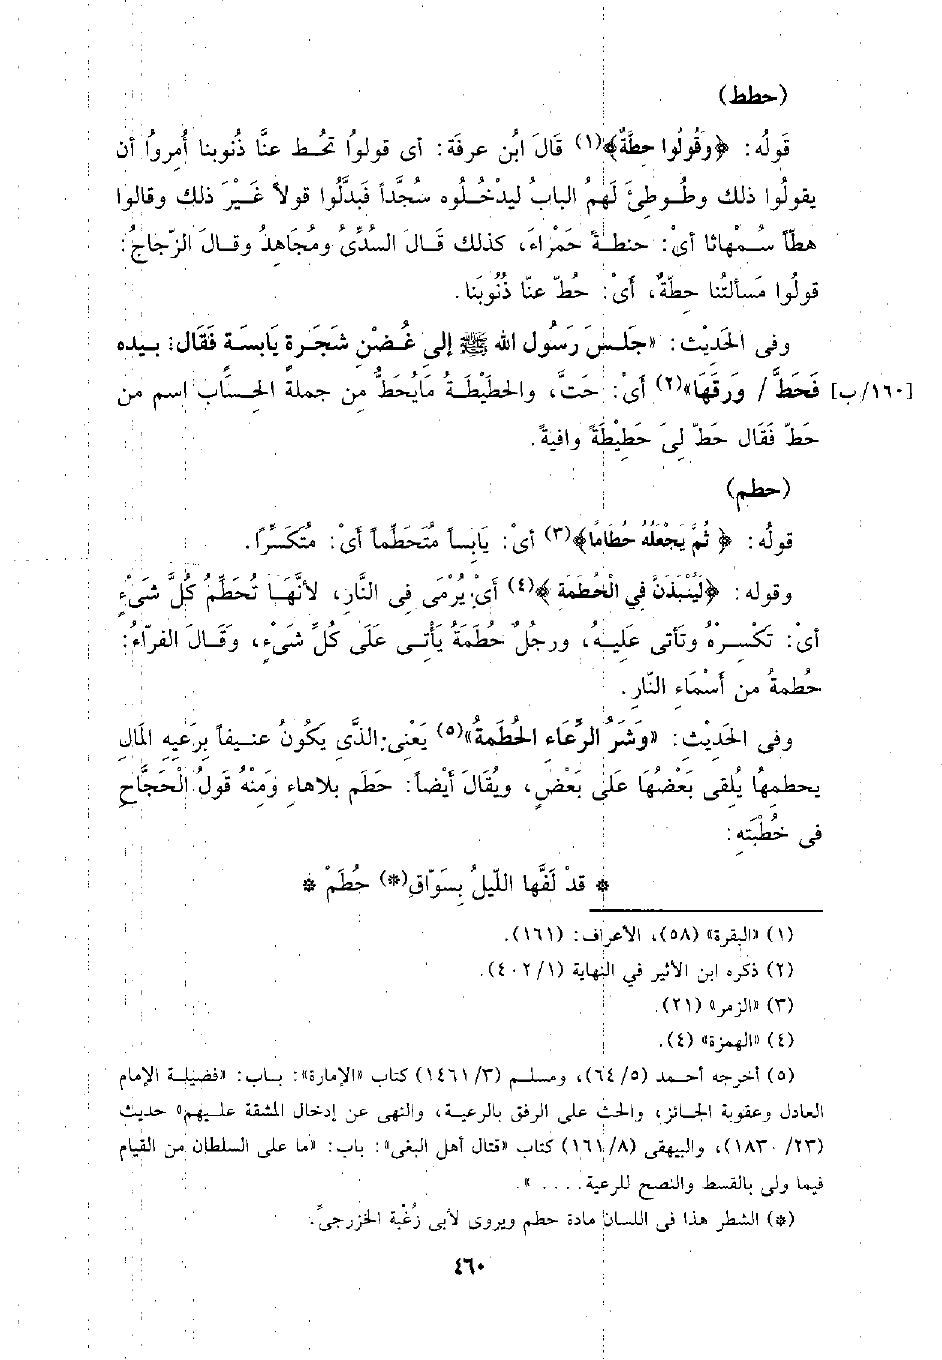 (حطط)
قولُه: ﴿وَقُولُوا حِطَّةٌ﴾(١) قَالَ ابْن عرفَة: أى قولوُا تحُـط عنَّا ذُنوبنا أُمروُا أن
يقولُوا ذلك وطُـوطِئَ لَهمُ البابُ ليدْخُـلُوه سُجَّداً فَبدَّلُوا قولاً غَـيْرَ ذلك وقالوا
هطّاً سُـمْهاثا أىْ: حنطـةً حَمْراءَ، كذلك قَـالَ السُدِّىُ ومُجَاهدُ وقـالَ الزّجاجُ:
قولُوا مَسألتُنا حطّةٌ، أىْ: حُطّ عنّا ذُنُوبَنا.
وفى الحَديْث: «جلَـسَ رَسُول الله ﷺ إلى غُـصْنِ شَجَرةٍ يَابسَةٍ فَقَال: بـيده
[١٦٠/ب] فَحَطَّ / وَرقَهَا»(٢) أىْ: حَتَّ، والحَطيْطَـةُ مَايُحَطُّ من جملة الحِـسَاب اسم من
حَطّ فَقَال حَطّ لِىَ حَطِيْطَةً وافيةً.
(حطم)
قولُه: ﴿ ثُمَّ يَجْعَلُهُ حُطَامًا﴾(٣) أىْ: يَابساً مُتَحَطِّماً أىْ: مُتَكَسِّراً.
وقوله: ﴿لَيُنْبَذَنَّ فِي الْحُطَمَةِ ﴾(٤) أىْ يُرْمَى فِى النَّارِ، لأنَّهـَا تُحَطّمُ كُلَّ شَىْءٍ
أىْ: تَكْسِـرْهُ وتَأتى عَليـهُ، ورجلُ حُطَمَةُ يَأْتـى عَلَى كُلّ شَىْءٍ، وقَـالَ الفرّاءُ:
حُطمةُ من أسْمَاءِ النّارِ.
وفى الحَديْث: «وَشَرَ الرِّعَاء الحُطَمةُ»(٥) يَعْنى: الذَّى يَكُونُ عنـيفاً برَعيِه المَالِ
يحطمِهُا يُلقى بَعْضُهَا عَلى بَعْضٍ، ويُقَالَ أيْضاً: حَطَم بلاهاءٍ وَمِنْهُ قَولُ الْحَجَّاجِ
فى خُطْبَته:
* قدْ لَفَّها اللّيلُ بِسَوّاقٍ(*) حُطَمْ *
(١) «البقرة» (٥٨)، الأعراف: (١٦١).
(٢) ذكره ابن الأثير في النهاية (١/ ٤٠٢).
(٣) «الزمر» (٢١).
(٤) «الهمزة» (٤).
(٥) أخرجه أحـمد (٥/ ٦٤)، ومسلم (٣/ ١٤٦١) كتاب «الإمارة»: بـاب: «فضيلـة الإمام
العادل وعقوبة الجائز، والحث على الرفق بالرعـية، والنهى عن إدخال المشقة علـيهم» حديث
(٢٣/ ١٨٣٠)، والبيهقى (٨/ ١٦١) كتاب «قتال أهل البغى»: باب: «ما على السلطان من القيام
فيما ولى بالقسط والنصح للرعية. . . . ».
(*) الشطر هذا فى اللسان مادة حطم ويروى لأبى زُغْبة الخزرجىّ.
٤٦٠